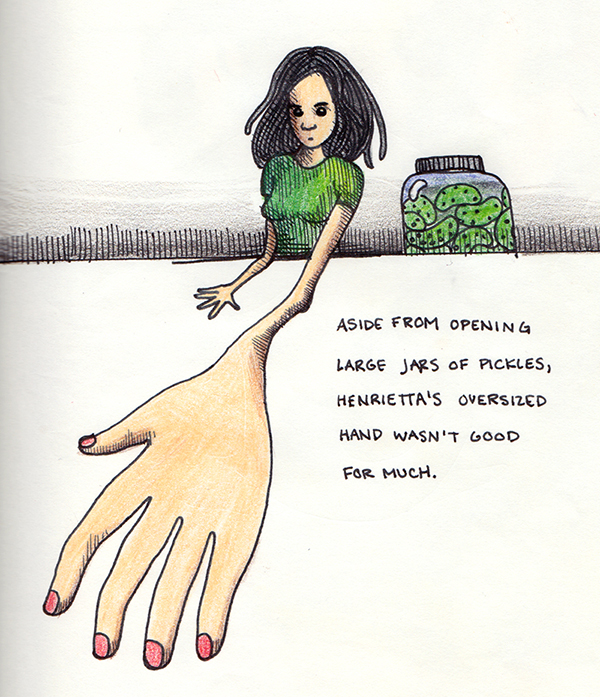 ASIDE FROM OPENING
LARGE JARS OF PICKLES,
HENRIETTA'S OVERSIZED
HAND WASN'T GOOD
FOR MUCH.